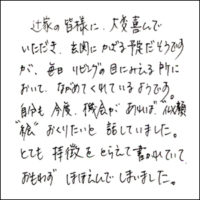 辻家の皆様に、大変喜んで
いただき、玄関にかざる予定だそうです
が、毎日リビングの目にみえる所に
おいて、ながめてくれているようです。
自分も今度、機会があれば"似顔
絵"おくりたいと話していました。
とても特徴をとらえて書かれていて、
おもわずほほえんでしまいました。